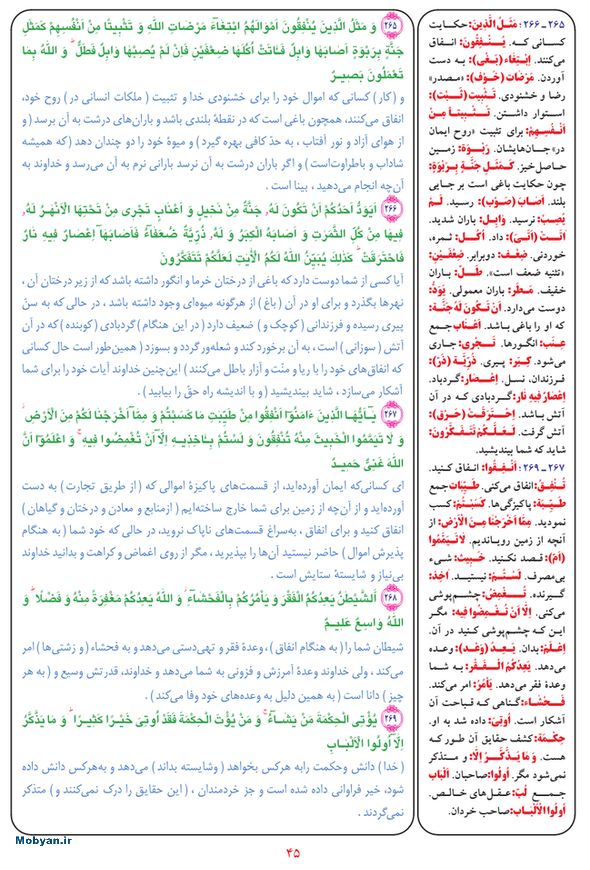 ۲۶۵ وَ مَثَلُ الَّذینَ یُنْفِقُونَ اَمْوالَهُمُ ابْتِغاۤءَ مَرْضاتِ اللهِ وَ تَثْبیتًا مِنْ اَنْفُسِهِمْ کَمَثَلِ
جَنَّةٍ بِرَبْوَةٍ اَصابَها وابِلٌ فَـٔاتَتْ اُکُلَها ضِعْفَیْنِ فَاِنْ لَمْ یُصِبْها وابِلٌ فَطَلٌّ وَ اللهُ بِما
تَعْمَلُونَ بَصیرٌ
و (کار) کسانی که اموال خود را برای خشنودی خدا و تثبیت ( ملکات انسانی در) روح خود،
انفاق می‌کنند، همچون باغی است که در نقطهٔ بلندی باشد و باران‌های درشت به آن برسد ( و
از هوای آزاد و نور آفتاب ، به حدّ کافی بهره گیرد ) و میوهٔ خود را دو چندان دهد (که همیشه
شاداب و باطراوت‌است ) و اگر باران درشت به آن نرسد بارانی نرم به آن می‌رسد و خداوند به
آن‌چه انجام می‌دهید ، بینا است .
۲۶۶ اَیَوَدُّ اَحَدُکُمْ اَنْ تَکُونَ لَهُ جَنَّةٌ مِنْ نَخیلٍ وَ اَعْنابٍ تَجْری مِنْ تَحْتِهَا الْاَنْهٰرُ لَهُ
فیها مِنْ کُلِّ الثَّمَرٰتِ وَ اَصابَهُ الْکِبَرُ وَ لَهُ ذُرِّیَّةٌ ضُعَفاۤءُ فَاَصابَهاۤ اِعْصارٌ فیهِ نارٌ
فَاحْتَرَقَتْ کَذٰلِکَ یُبَیِّنُ اللهُ لَکُمُ الْاٰیٰتِ لَعَلَّکُمْ تَتَفَکَّرُونَ
آیا کسی از شما دوست دارد که باغی از درختان خرما و انگور داشته باشد که از زیر درختان آن ،
نهرها بگذرد و برای او در آن ( باغ ) از هرگونه میوه‌ای وجود داشته باشد ، در حالی که به سنّ
پیری رسیده و فرزندانی (کوچک و ) ضعیف دارد ( در این هنگام ) گردبادی (کوبنده) که در آن
آتش ( سوزانی ) است ، به آن برخورد کند و شعله‌ور گردد و بسوزد ( همین‌طور است حال کسانی
که انفاق‌های خود را با ریا و منّت و آزار باطل می‌کنند ) این‌چنین خداوند آیات خود را برای شما
آشکار می‌سازد ، شاید بیندیشید ( و با اندیشه راه حقّ را بیابید ) .
۲۶۷ یٰۤاَیُّهَا الَّذینَ ءٰامَنُوۤا اَنْفِقُوا مِنْ طَیِّبٰتِ ما کَسَبْتُمْ وَ مِمّاۤ اَخْرَجْنا لَکُمْ مِنَ الْاَرْضِ
وَ لا تَیَمَّمُوا الْخَبیثَ مِنْهُ تُنْفِقُونَ وَ لَسْتُمْ بِـٔاخِذیهِ اِلّاۤ اَنْ تُغْمِضُوا فیهِ وَ اعْلَمُوۤا اَنَّ
اللهَ غَنِیٌّ حَمیدٌ
ای کسانی‌که ایمان آورده‌اید، از قسمت‌های پاکیزهٔ اموالی که ( از طریق تجارت) به دست
آورده‌اید و از آن‌چه از زمین برای شما خارج ساخته‌ایم ( ازمنابع و معادن و درختان و گیاهان )
انفاق کنید و برای انفاق ، به‌سراغ قسمت‌های ناپاک نروید، در حالی که خود شما ( به هنگام
پذیرش اموال ) حاضر نیستید آن‌ها را بپذیرید ، مگر از روی اغماض و کراهت و بدانید خداوند
بی‌نیاز و شایستهٔ ستایش است .
۲۶۸ اَلشَّیْطٰنُ یَعِدُکُمُ الْفَقْرَ وَ یَأْمُرُکُمْ بِالْفَحْشاۤءِ وَ اللهُ یَعِدُکُمْ مَغْفِرَةً مِنْهُ وَ فَضْلًا وَ
اللهُ واسِعٌ عَلیمٌ
شیطان شما را ( به هنگام انفاق ) ، وعدهٔ فقر و تهی‌دستی می‌دهد و به فحشاء ( و زشتی‌ها ) امر
می‌کند ، ولی خداوند وعدهٔ آمرزش و فزونی به شما می‌دهد و خداوند، قدرتش وسیع و ( به هر
چیز ) دانا است ( به همین دلیل به وعده‌های خود وفا می‌کند ) .
۲۶۹ یُؤْتِی الْحِکْمَةَ مَنْ یَشاۤءُ وَ مَنْ یُؤْتَ الْحِکْمَةَ فَقَدْ اُوتِیَ خَیْرًا کَثیرًا وَ ما یَذَّکَّرُ
اِلّاۤ اُولُوا الْاَلْبابِ
(خدا ) دانش وحکمت رابه هرکس بخواهد ( وشایسته بداند ) می‌دهد و به‌هرکس دانش داده
شود، خیر فراوانی داده شده است و جز خردمندان ، ( این حقایق را درک نمی‌کنند و ) متذکر
نمی‌گردند .
۲۶۵ ـ ۲۶۶ : مَثَلُ الَّذینَ: حکایت
کسانی که. یُـنْـفِقُونَ: انـفاق
می‌کنند. اِبْتِغاءَ (بَغْی): به دست
آوردن. مَرْضات (خَوْف): «مصدر»
رضا و خشنودی. تَـثْبیت (ثَبْت):
استوار داشتن. تَـثْبیتاً مِنْ
اَنْفُسِهِمْ: برای تثبیت «روح ایمان
در» جان‌هایشان. رَبْـوَة: زمین
حاصل‌خیز. کَمَثَلِ جَنَّةٍ بِرَبْوَةٍ:
چون حکایت باغی است بر جایی
بلند. اَصابَ (صَوْب): رسید. لَمْ
یُصِبْ: نرسید. وابِل: باران شدید.
اتَتْ (اَتْیْ): داد. اُکُـل: ثـمره،
خوردنی. ضِعْف: دوبرابر. ضِعْفَیْنِ:
«تثنیه ضعف است». طَلّ: باران
خفیف. مَـطَر: باران معمولی. یَوَدُّ:
دوست می‌دارد. اَنْ تَکُونَ لَهُ جَنَّة:
که او را باغی باشد. اَعْناب جمع
عِنَب: انگورها. تَجْـری: جاری
می‌شود. کِبَر: پیری. ذُرِّیَّة (ذَرّ):
فرزندان، نسل. اِعْصار: گردباد.
اِعْصارٌ فیهِ نار: گردبادی که در آن
آتش باشد. اِحْتَرَقَتْ (حَرْق):
آتش گرفت. لَعَلَّکُمْ تَتَفَکَّرُونَ:
شاید که شما بیندیشید.
۲۶۷ ـ ۲۶۹ : اَنْفِقُوا: انفاق کنید.
تُنْفِقُ: انفاق می‌کنی. طَیِّبات جمع
طَیِّبَة: پاکیزگی‌ها. کَسَبْتُمْ: کسب
نمودید. مِمّا اَخْرَجْنا مِنَ الْاَرْض: از
آنچه از زمین رویاندیم. لاتَیَمَّمُوا
(اَمّ): قـصد نکـنید. خَبیث: شیء
بی‌مصرف. لَسْتُمْ: نیستیـد. اخِذ:
گیرنده. تُـغْمِضُ: چشم‌پوشی
می‌کنی. اِلّا اَنْ تُغْمِضُوا فیه: مگر
این که چشم‌پوشی کنید در آن.
اِعْلَمْ: بدان. یَعِدُ (وَعْد): وعده
می‌دهد. یَعِدُکُمُ الْـفَقْر: به شـما
وعدهٔ فقر می‌دهد. یَأْمُرُ: امر می‌کند.
فَـحْشاء: گناهی که قباحت آن
آشکار است. اُوتِیَ: داده شد به او.
حِکْمَة: کشف حقایق آن طور که
هست. وَ ما یَذَّکَّرُ اِلّا: و متذکر
نمی‌شود مگر. اُولُوا: صاحبان. اَلْباب
جـمـع لُبّ: عـقل‌های خالـص.
اُولُوا الْاَلْباب: صاحب خردان.
Mobyan.ir
۴۵